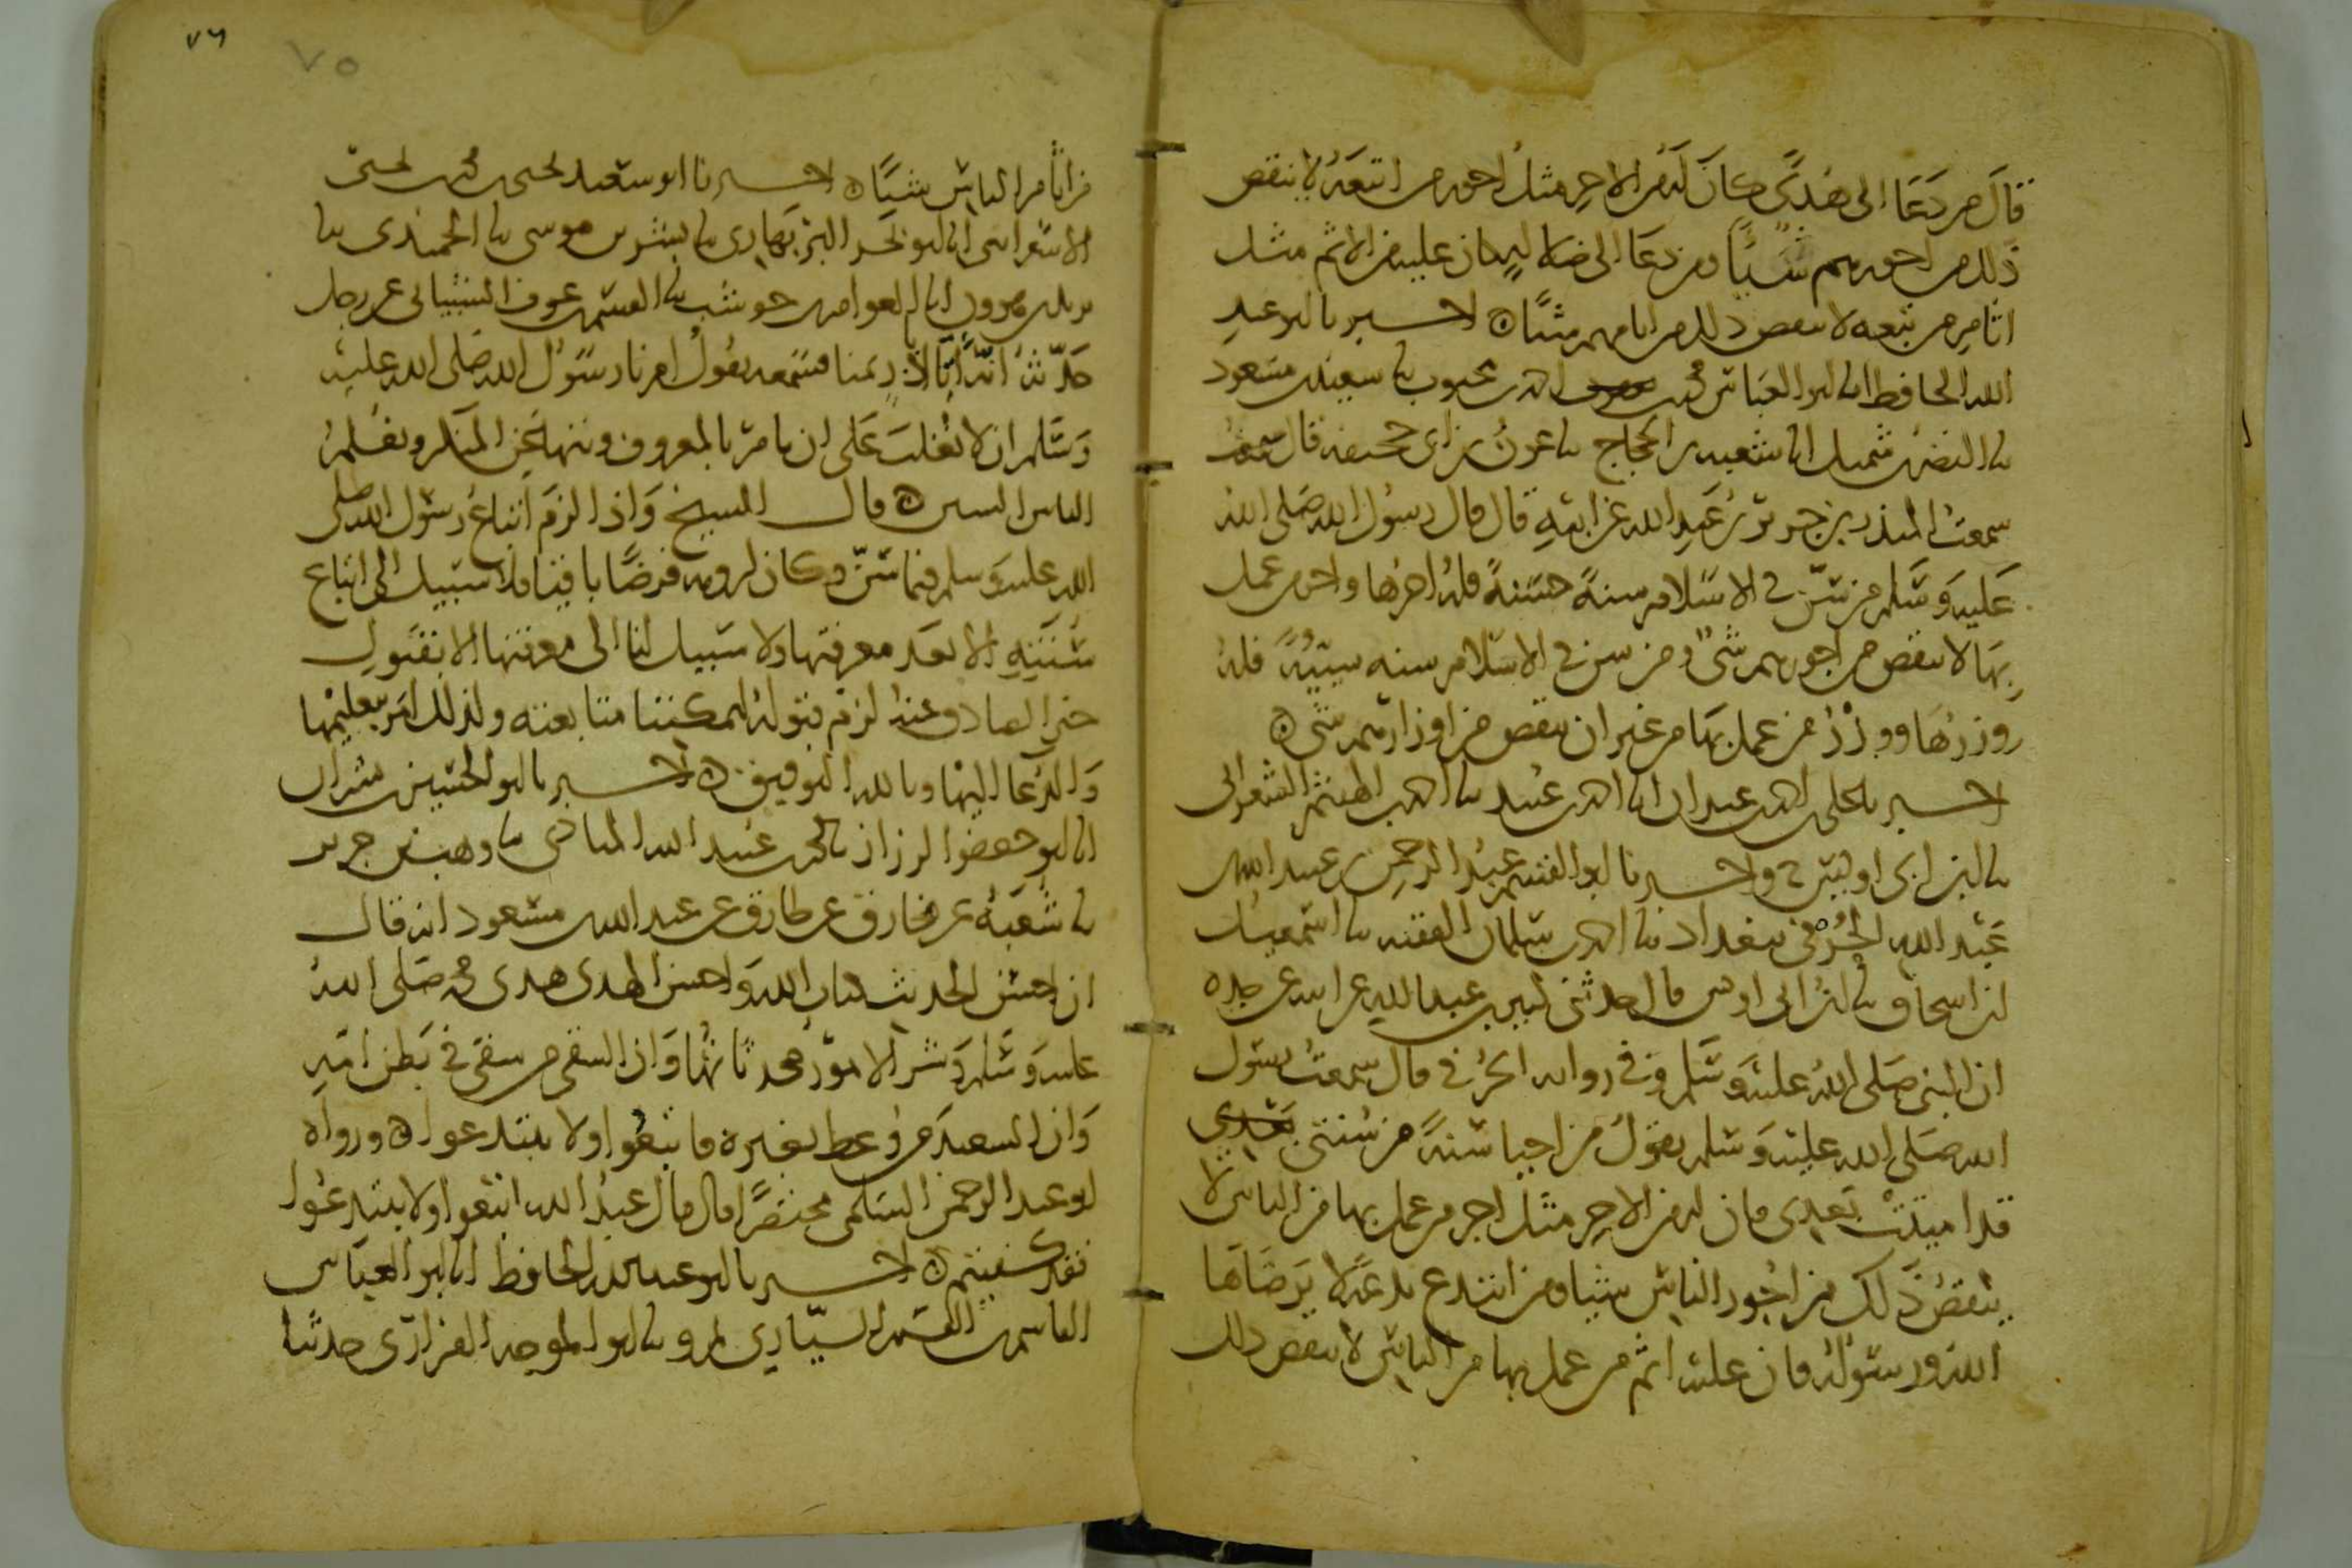 قال من دعا الى هدى كان له من الاجر مثل اجور من اتبعه لا ينقص
ذلك من اجورهم شيئا ومن دعا الى ضلالة كان عليه من الاثم مثل
اثام من تبعه لا ينقص ذلك من اثامهم شيئا اخبرنا ابو عبد
الله الحافظ انا ابو العباس محمد بن احمد بن محبوب نا سعيد بن مسعود
نا النضر بن شميل انا شعبه بن الحجاج نا عون بن ابي جحيفه قال سمعت
سمعت المنذر بن جرير بن عبد الله عن ابيه قال قال رسول الله صلى الله
عليه وسلم من سن في الاسلام سنة حسنة فله اجرها واجر من عمل
بها لا ينقص من اجورهم شئ ومن سن في الاسلام سنه سيئة فله
وزرها ووزر من عمل بها من غير ان ينقص من اوزارهم شئ
اخبرنا علي بن احمد بن عبدان انا احمد بن عبيد نا احمد بن الهيثم الشعراني
نا ابن ابي اويس ح واخبرنا ابو القسم عبد الرحمن بن عبيد الله بن
عبد الله الحرفي ببغداد نا احمد بن سلمان الفقيه نا اسمعيل
ابن اسحاق نا ابن ابي اويس قال حدثني كثير بن عبد الله عن ابيه عن جده
ان النبي صلى الله عليه وسلم وفي روايه الحرفي قال سمعت رسول
الله صلى الله عليه وسلم يقول من احيا سنة من سنتي
قد اميتت بعدي فان له من الاجر مثل اجر من عمل بها من الناس لا
ينقص ذلك من اجور الناس شيئا ومن ابتدع بدعة لا يرضاها
الله ورسوله فان عليه اثم من عمل بها من الناس لا ينقص ذلك
٧٦
٧٥
من اثام الناس شيئا اخبرنا ابو سعيد يحيى بن محمد بن يحيى
الاسفراينى انا ابو بحر البربهاري نا بشر بن موسى نا الحميدي نا
يزيد بن هرون انا العوام بن حوشب نا القسم بن عوف الشيباني عن رجل
حدثه انه اتا ابا ذر بمنا فسمعه يقول امرنا رسول الله صلى الله عليه
وسلم ان لا نغلب على ان نامر بالمعروف وننهى عن المنكر ونعلم
الناس السنن قال الشيخ واذا لزم اتباع رسول الله صلى
الله عليه وسلم فيما سن وكان لزومه فرضا باقيا فلا سبيل الى اتباع
سنته الا بعد معرفتها ولا سبيل لنا الى معرفتها الا بقبول
خبر الصادق عنه لزم قبوله ليمكننا متابعته ولذلك امر بتعليمها
والدعا اليها وبالله التوفيق اخبرنا ابو الحسين بن بشران
انا ابو جعفر الرزاز نا محمد بن عبيد الله المنادي نا وهب بن جرير
نا شعبه عن مخارق عن طارق عن عبد الله بن مسعود انه قال
ان احسن الحديث كتاب الله واحسن الهدى هدى محمد صلى الله
عليه وسلم وشر الامور محدثاتها وان الشقي من شقي في بطن امه
وان السعيد من وعظ بغيره فاتبعوا ولا تبتدعوا ورواه
ابو عبد الرحمن السلمي مختصرا قال قال عبد الله اتبعوا ولا تبتدعوا
فقد كفيتم اخبرنا ابو عبد الله الحافظ انا ابو العباس
القاسم بن القسم السياري بمرو نا ابو الموجه الفزاري حدثنا